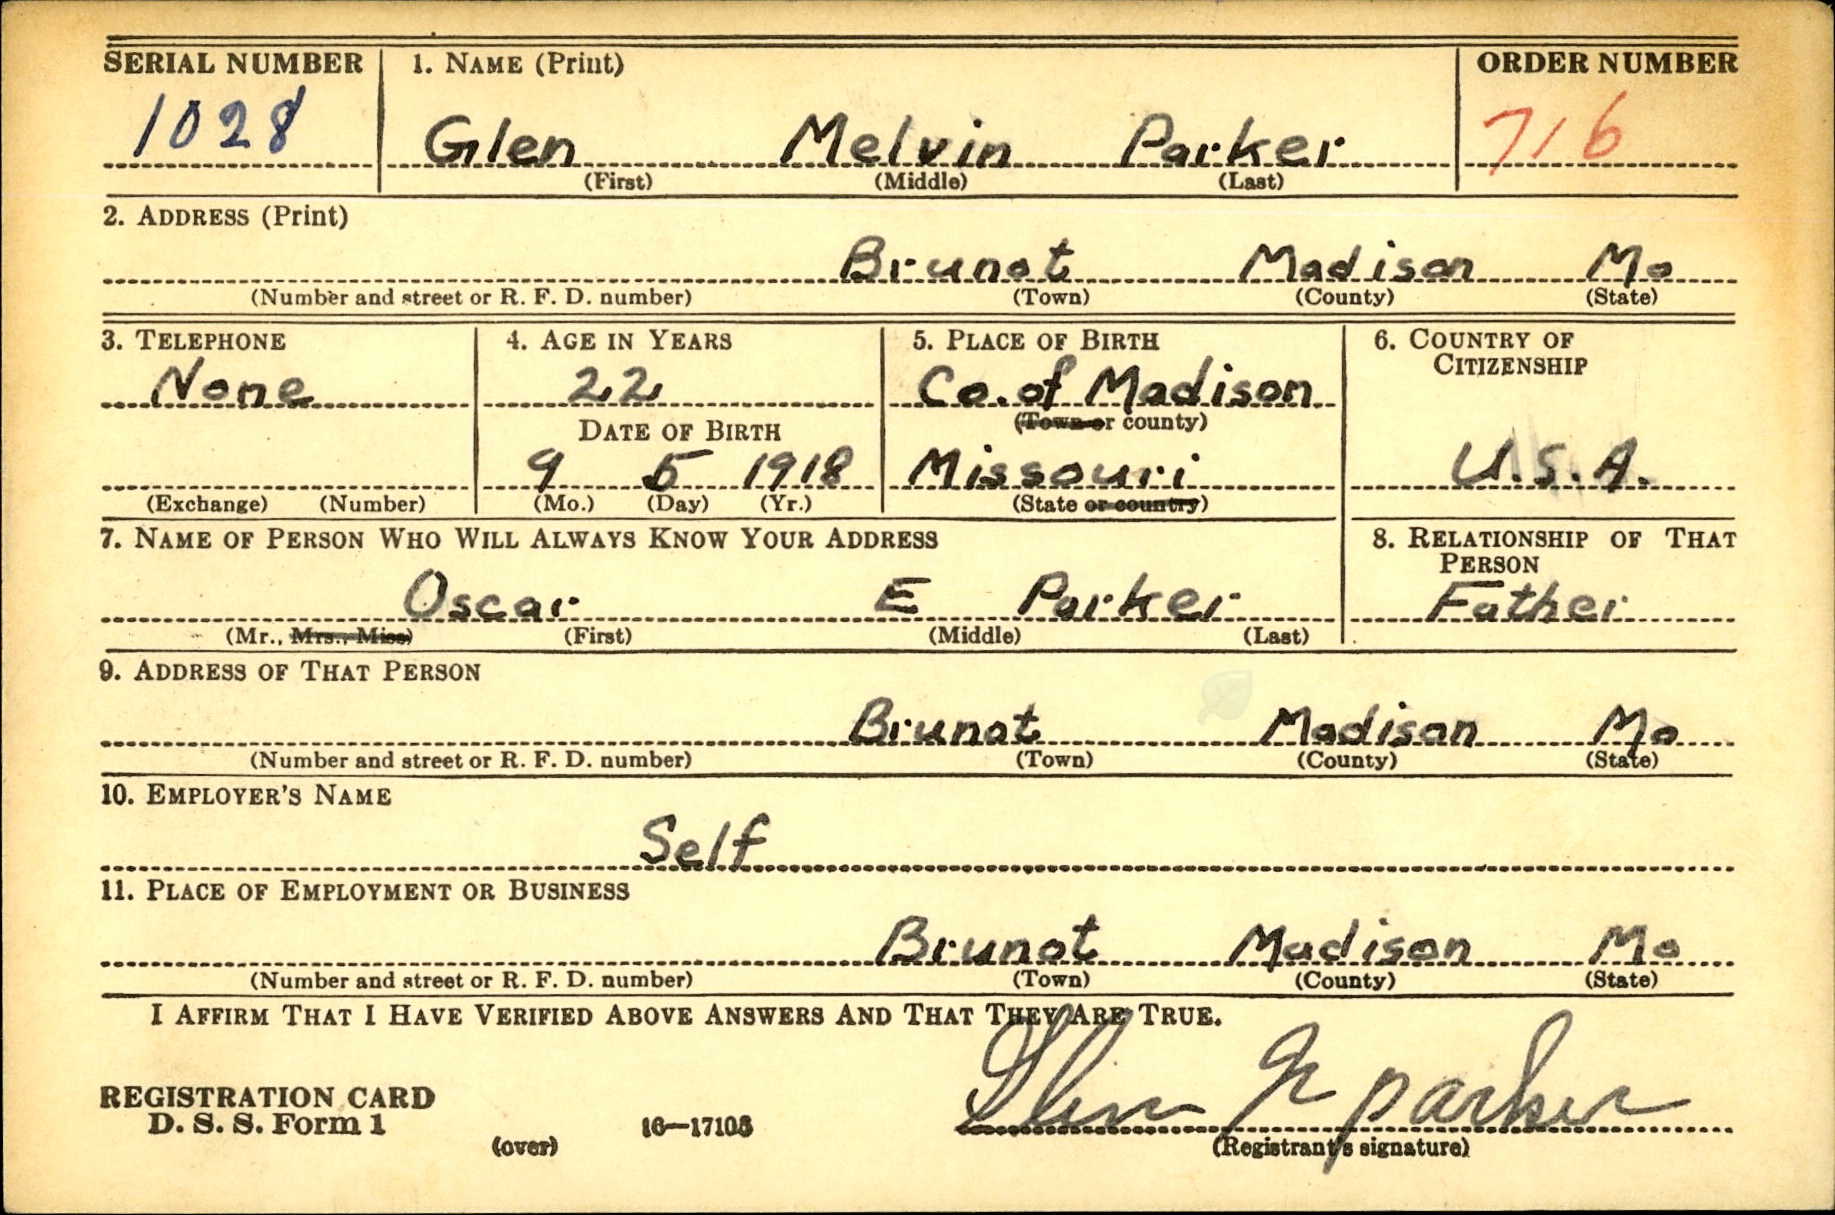 SERIAL NUMBER 1. NAME (Print) ORDER NUMBER
1028 Glen Melvin Parker 716
(First) (Middle) (Last)
2. ADDRESS (Print)
Brunot Madison Mo
(Number and street or R. F. D. number) (Town) (County) (State)
3. TELEPHONE 4. AGE IN YEARS 5. PLACE OF BIRTH 6. COUNTRY OF
CITIZENSHIP
None 22 Co. of Madison
(Town or county)
DATE OF BIRTH
9 5 1918 Missouri U.S.A.
(Exchange) (Number) (Mo.) (Day) (Yr.) (State or country)
7. NAME OF PERSON WHO WILL ALWAYS KNOW YOUR ADDRESS 8. RELATIONSHIP OF THAT
PERSON
Oscar E Parker Father
(Mr., Mrs., Miss) (First) (Middle) (Last)
9. ADDRESS OF THAT PERSON
Brunot Madison Mo
(Number and street or R. F. D. number) (Town) (County) (State)
10. EMPLOYER'S NAME
Self
11. PLACE OF EMPLOYMENT OR BUSINESS
Brunot Madison Mo
(Number and street or R. F. D. number) (Town) (County) (State)
I AFFIRM THAT I HAVE VERIFIED ABOVE ANSWERS AND THAT THEY ARE TRUE.
REGISTRATION CARD Glen M Parker
D. S. S. Form 1 (over) 16—17105 (Registrant's signature)